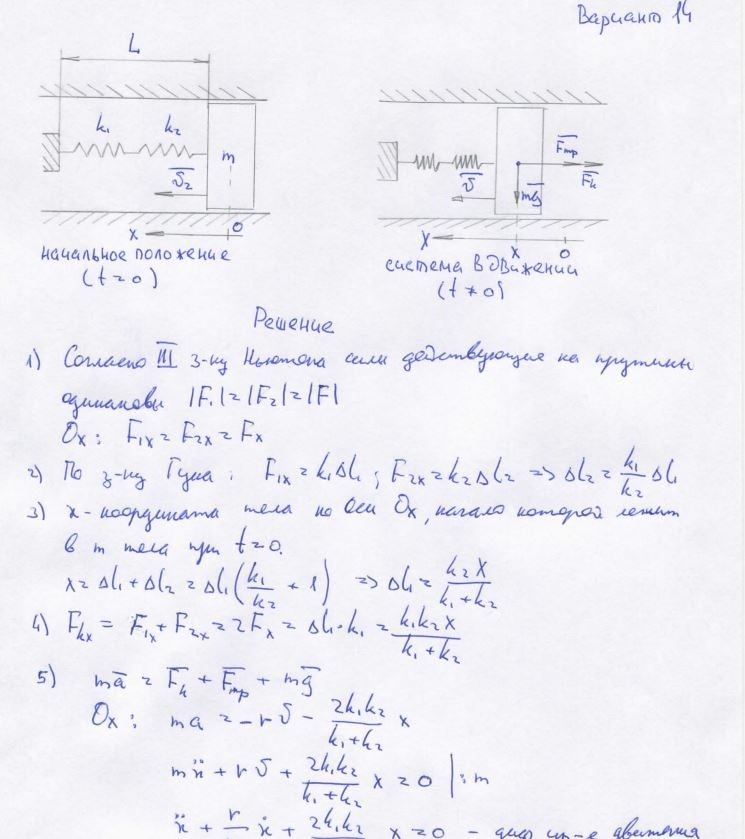 Вариант 14
L
k₁ k₂
m
v̄₂
x 0
начальное положение
(t=0)
F̄тр
F̄k
v̄
mḡ
x x 0
система в движении
(t≠0)
Решение
1) Согласно III з-ну Ньютона силы действующие на пружины
одинаковы |F₁|=|F₂|=|F|
Ox: F₁ₓ = F₂ₓ = Fₓ
2) По з-ну Гука: F₁ₓ = k₁Δl₁; F₂ₓ = k₂Δl₂ => Δl₂ = k₁/k₂ Δl₁
3) x - координата тела по оси Ox, начало которой лежит
в т тела при t=0.
x = Δl₁ + Δl₂ = Δl₁(k₁/k₂ + 1) => Δl₁ = k₂x/(k₁+k₂)
4) Fkx = F₁ₓ + F₂ₓ = 2Fₓ = Δl₁·k₁ = k₁k₂x/(k₁+k₂)
5) mā = F̄k + F̄тр + mḡ
Ox: ma = -rv - 2k₁k₂/(k₁+k₂) x
mẍ + rv + 2k₁k₂/(k₁+k₂) x = 0 |:m
ẍ + r/ ẋ + 2k₁k₂/ x = 0 - диф ур-е движения